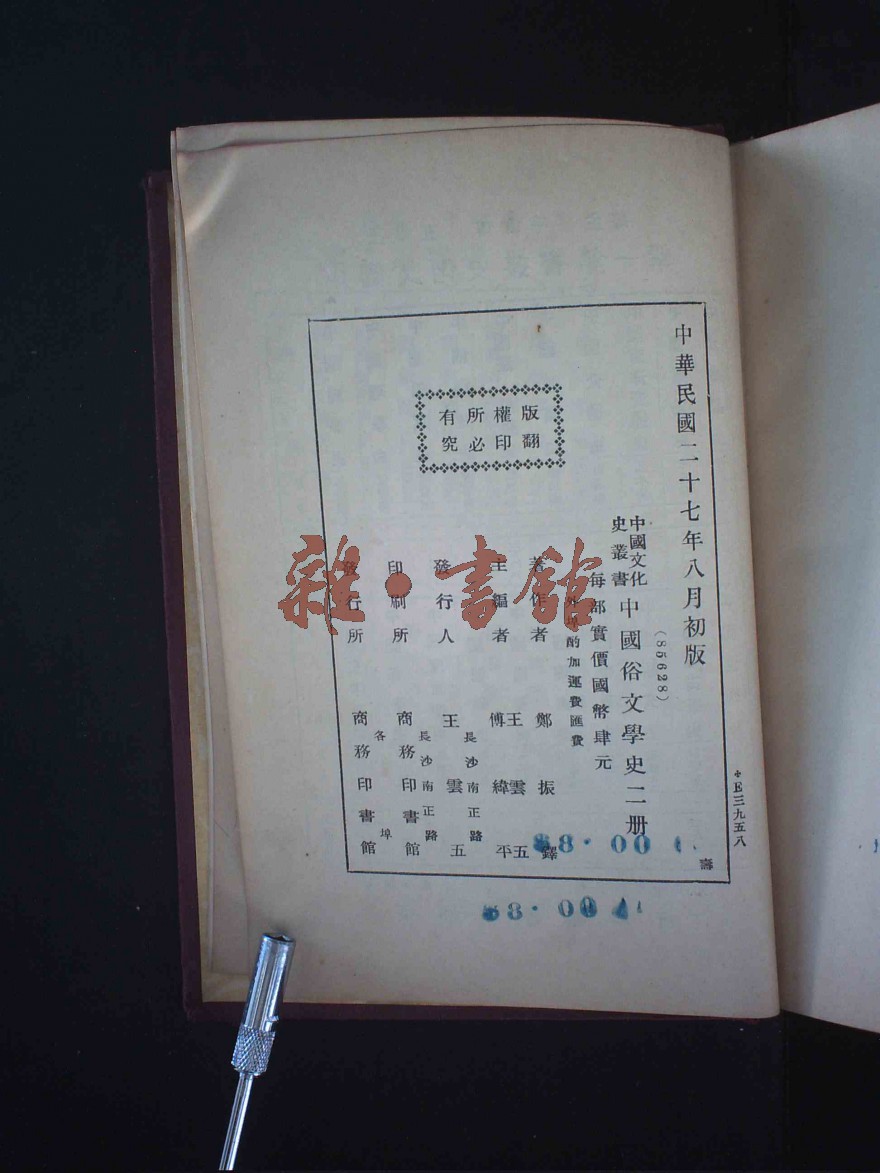 中華民國二十七年八月初版
(85628)
中國文化
史叢書
中國俗文學史二册
每部實價國幣肆元
外埠酌加運費匯費
版權所有
翻印必究
著作者 鄭振鐸
主編者 王雲五
傅緯平
發行人 王雲五
長沙南正路
印刷所 商務印書館
長沙南正路
發行所 商務印書館
各埠
E三九五八
壽
雜·書館